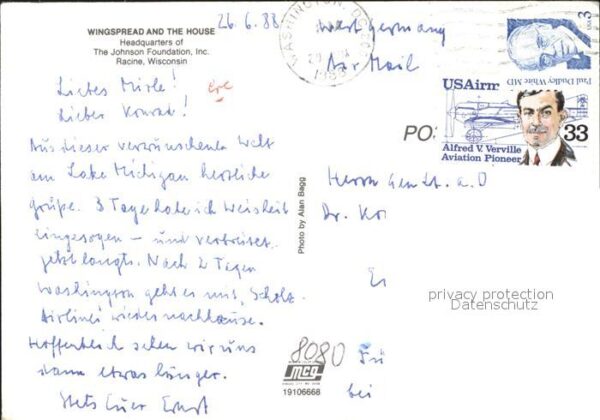 WINGSPREAD AND THE HOUSE
Headquarters of
The Johnson Foundation, Inc.
Racine, Wisconsin
26.6.88
WASHINGTON, D.C.
1988
West Germany
Air Mail
3
Paul Dudley White MD
USAirm
33
Alfred V. Verville
Aviation Pioneer
PO
Liebes Mirle!
Lieber Konrad!
Aus dieser verwunschenen Welt
am Lake Michigan herzliche
grüße. 3 Tage habe ich Weisheit
eingesogen – und verbreitet.
jetzt langts. Nach 2 Tagen
Washington geht es mit
Airlines wieder nachhause.
Hoffentlich sehen wir uns
dann etwas länger.
Stets Euer Ernst
Photo by Alan Bagg
Herrn Gen Lt. a. D
Dr. Ko
privacy protection
Datenschutz
8080
Fü
bei
mcg
19106668